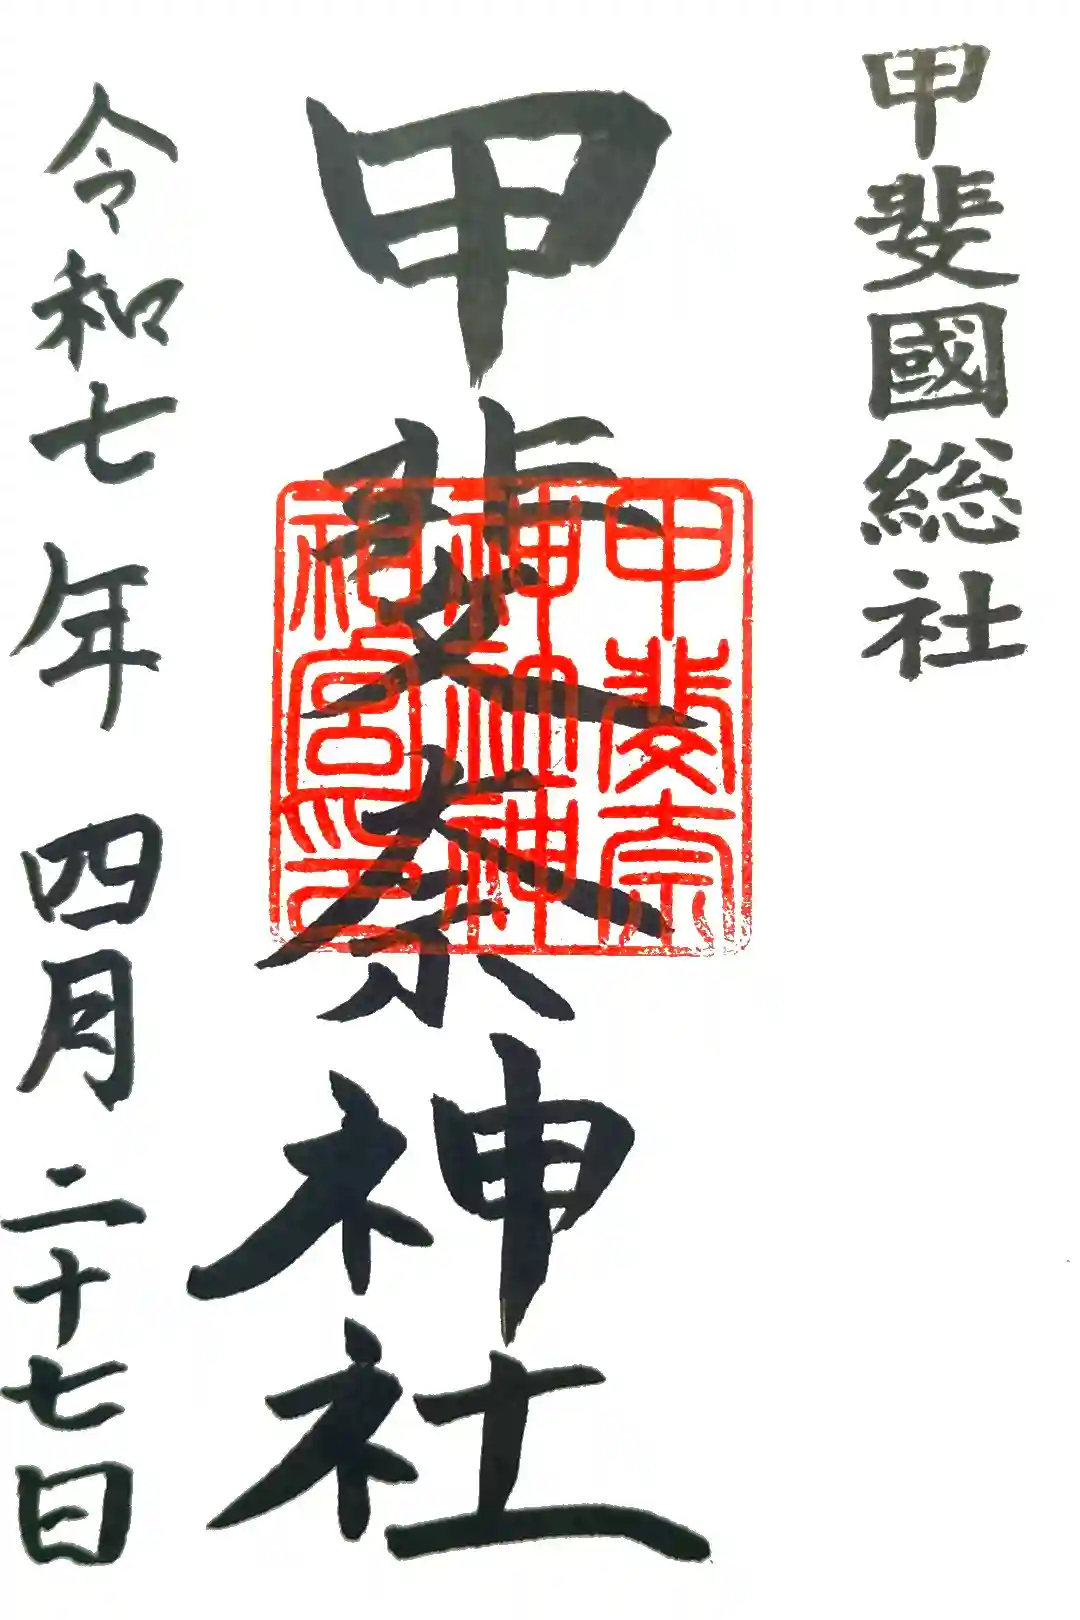 甲斐國総社
甲斐奈神社
甲斐奈
神社神
宮印
令和七年四月二十七日